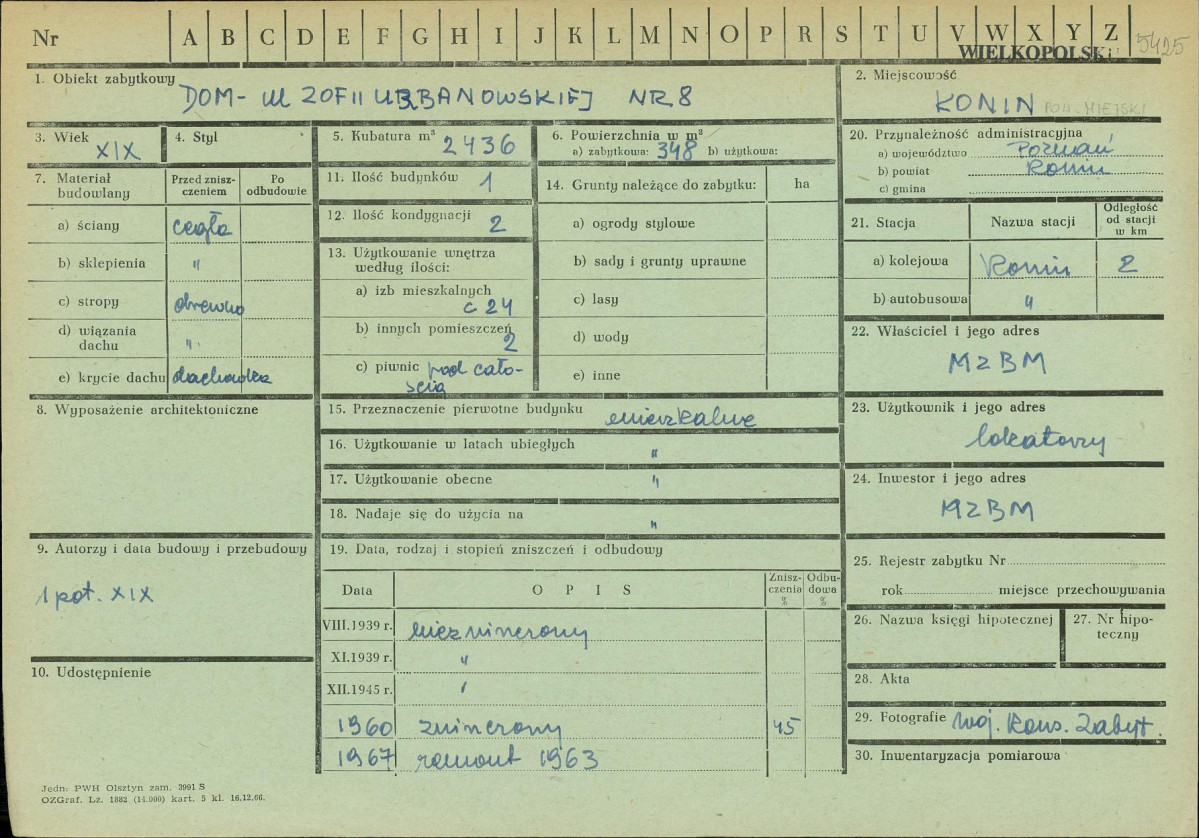 Nr A B C D E F G H I J K L M N O P R S T U V W X Y Z 5425
WIELKOPOLSKI
1. Obiekt zabytkowy
DOM - Ul ZOFII URBANOWSKIEJ NR 8
2. Miejscowość
KONIN POW. MIEJSKI
3. Wiek
XIX
4. Styl
5. Kubatura m³ 2436
6. Powierzchnia w m²
a) zabytkowa: 348 b) użytkowa:
20. Przynależność administracyjna
a) województwo Poznań
b) powiat Konin
c) gmina
7. Materiał budowlany
Przed zniszczeniem
Po odbudowie
a) ściany cegła
b) sklepienia "
c) stropy drewno
d) wiązania dachu "
e) krycie dachu dachówka
11. Ilość budynków 1
12. Ilość kondygnacji 2
13. Użytkowanie wnętrza
według ilości:
a) izb mieszkalnych
c 24
b) innych pomieszczeń
2
c) piwnic pod cało-
ścią
14. Grunty należące do zabytku: ha
a) ogrody stylowe
b) sady i grunty uprawne
c) lasy
d) wody
e) inne
21. Stacja
Nazwa stacji
Odległość
od stacji
w km
a) kolejowa Konin 2
b) autobusowa "
22. Właściciel i jego adres
MZBM
8. Wyposażenie architektoniczne
15. Przeznaczenie pierwotne budynku mieszkalne
16. Użytkowanie w latach ubiegłych "
17. Użytkowanie obecne "
18. Nadaje się do użycia na "
23. Użytkownik i jego adres
lokatorzy
24. Inwestor i jego adres
MZBM
9. Autorzy i data budowy i przebudowy
1 poł. XIX
19. Data, rodzaj i stopień zniszczeń i odbudowy
Data
O P I S
Znisz-
czenia
%
Odbu-
dowa
%
VIII.1939 r. niezniszczony
XI.1939 r. "
XII.1945 r. "
1960 zniszczony 45
1967 remont 1963
25. Rejestr zabytku Nr
rok miejsce przechowywania
26. Nazwa księgi hipotecznej
27. Nr hipo-
teczny
10. Udostępnienie
28. Akta
29. Fotografie Woj. Kons. Zabyt.
30. Inwentaryzacja pomiarowa
Jedn: PWH Olsztyn zam. 3991 S
OZGraf. Lz. 1882 (14.000) kart. 5 kl. 16.12.66.